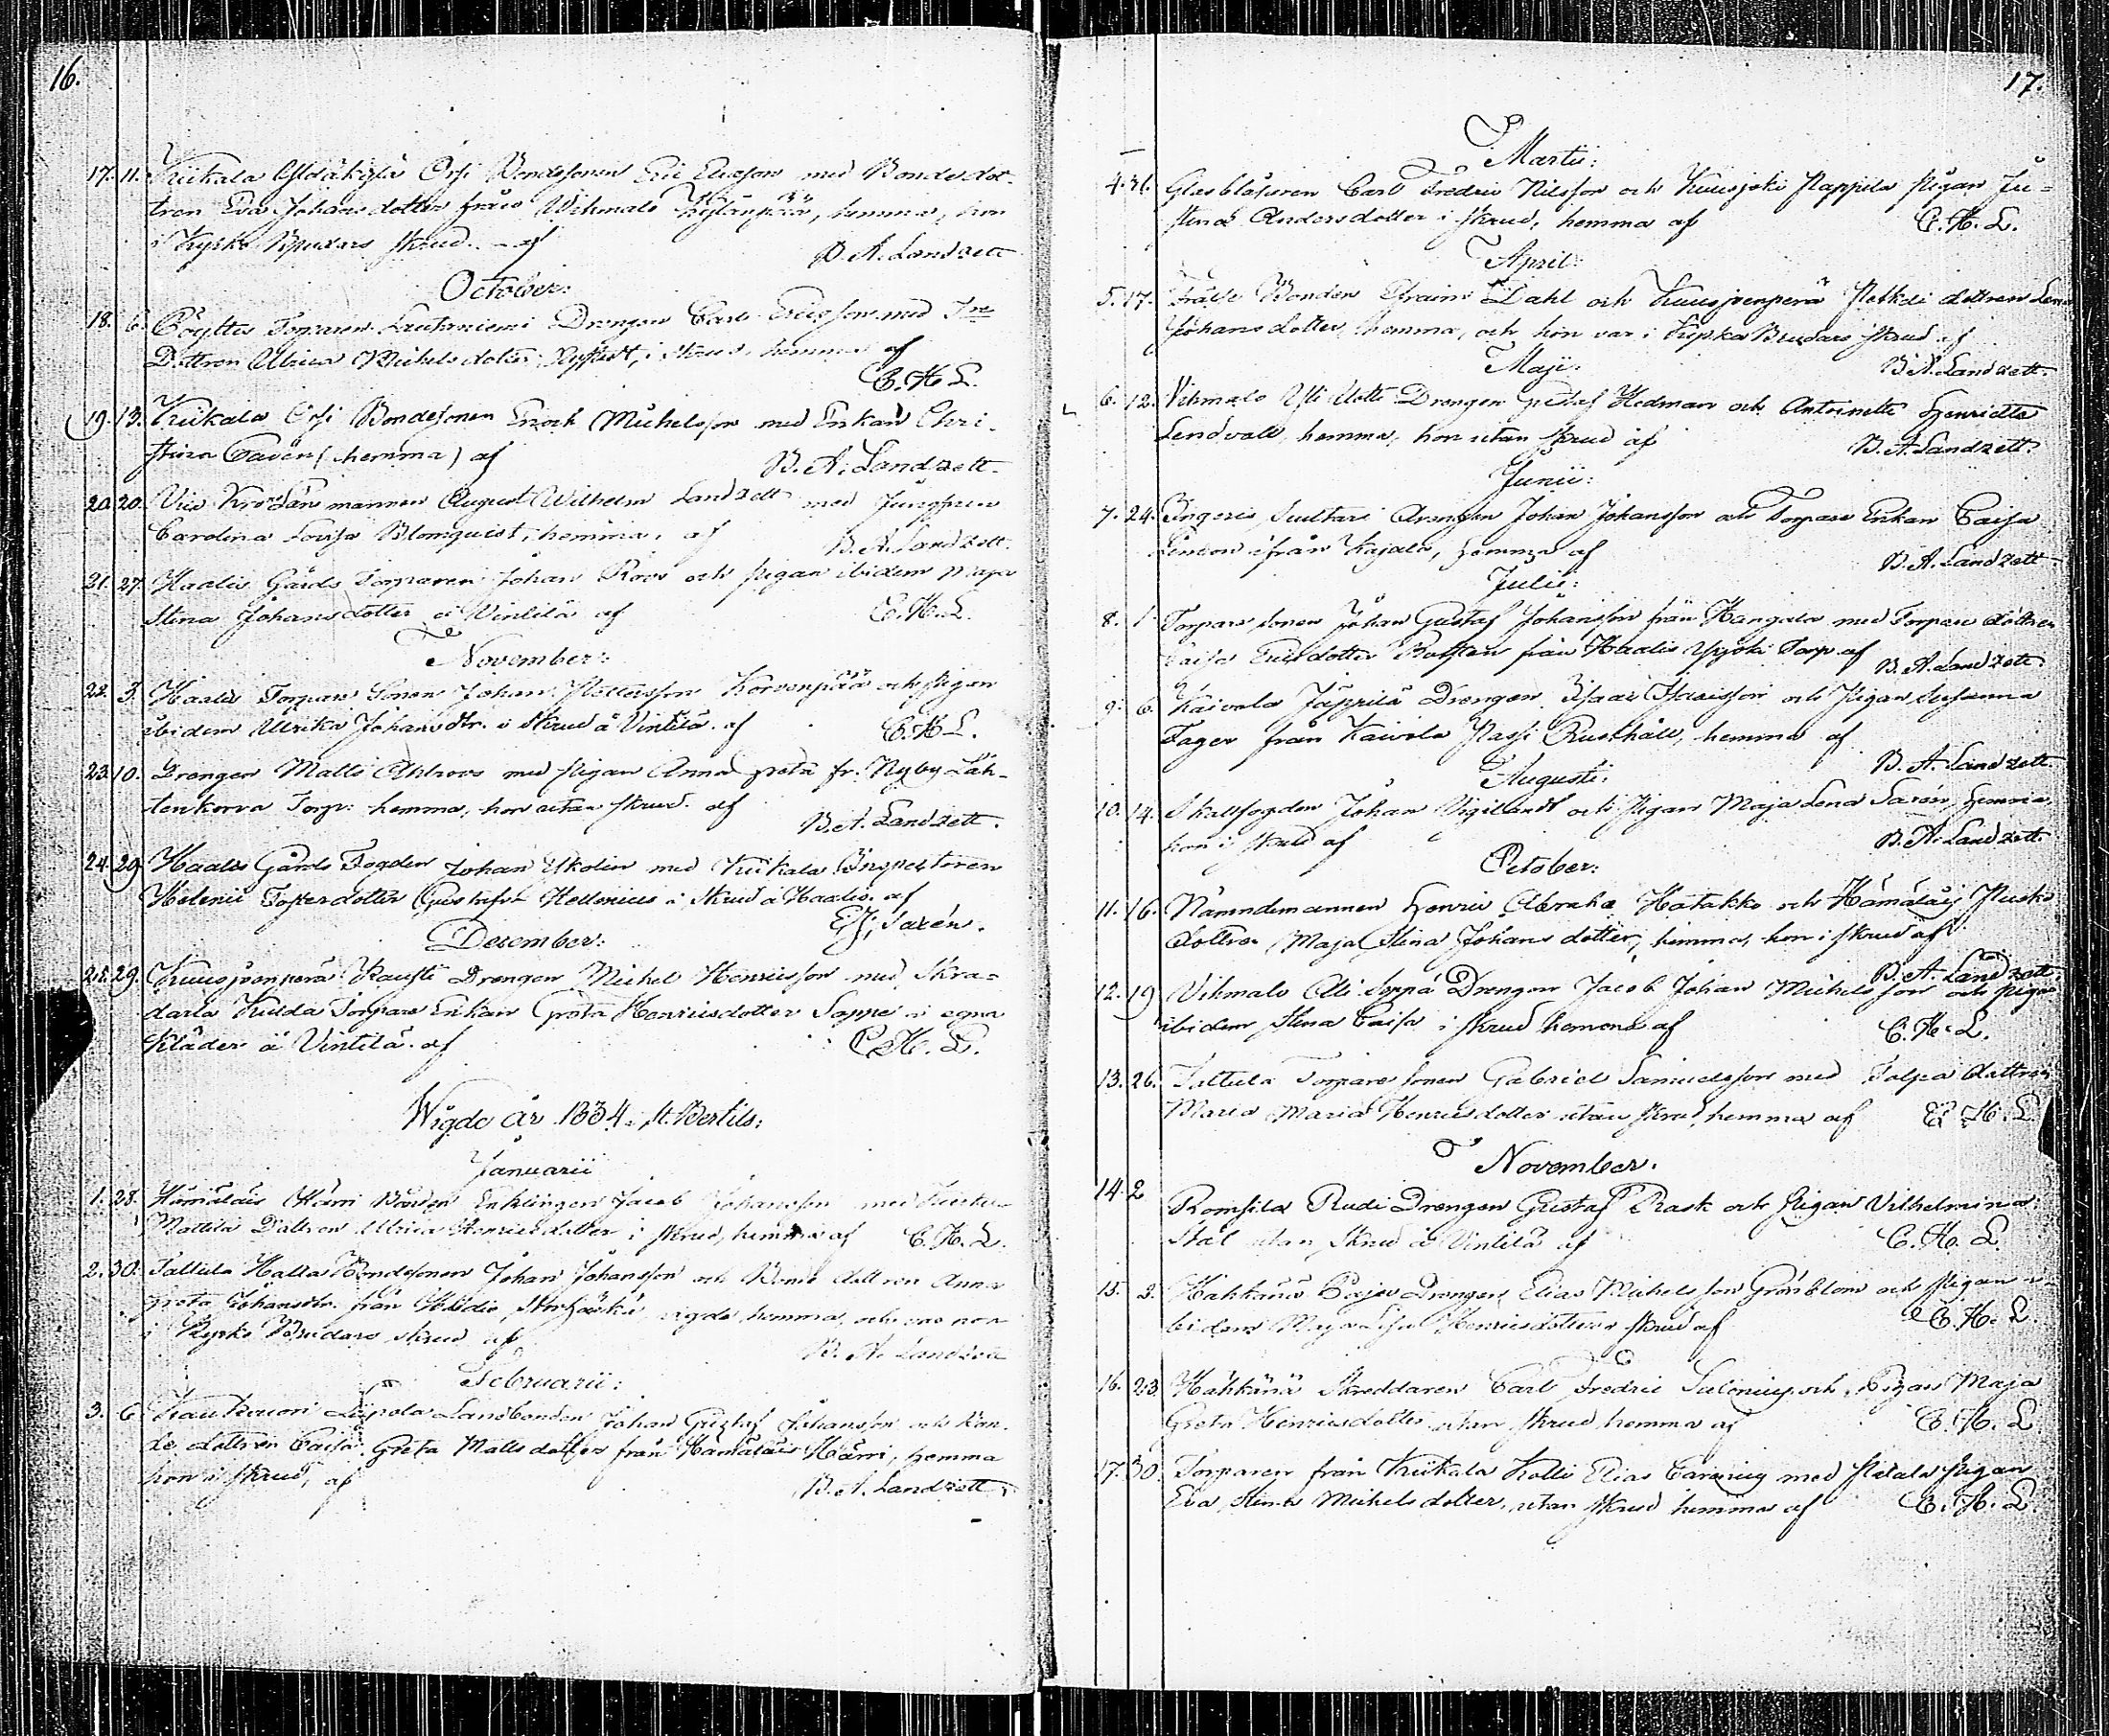 16.
17. 11. Kiikala Yldäkylä Orsi Bondesonen Eric Ericsson med Bondedot-
tren Eva Johansdotter från Wihmalo Kylänpää, hemma, hon
i Kyrko Brudars skrud. af B. A. Landzett
October:
18. 6. Pöyltis Torparen Drengen Carl Ericsson med
Dottren Ulrica Michelsdotter i skrud, hemma af
C. H. L.
19. 13. Kiikala Orsi Bondesonen Enoch Michelsson med Enkan Chri-
stina Cavén (hemma) af B. A. Landzett.
20. 20. Vice Krono Länsmannen August Wilhelm Landzett med Jungfrun
Carolina Lovisa Blomquist, hemma, af B. A. Landzett.
21. 27. Haalis Gårds Torparen Johan Roos och pigan ibidem Maja
Stina Johansdotter å Vintilä af C. H. L.
November:
22. 3. Haalis Torpare Sonen Johan Korvenpää och Pigan
ibidem Ulrika Johansdtr. i skrud å Vintilä. af C. H. L.
23. 10. Drengen Matts Ahlroos med pigan Anna Greta fr. Nyby Läh-
tenkorva Torp: hemma, hon utan skrud. af B. A. Landzett.
24. 29 Haalis Gårds Fogden Johan Ekolin med Kiikala Inspectoren
Helenii Fosterdotter Gustafva Hellenius i Skrud å Haalis. af
Saxén.
December:
25. 29. Kuusjoenperä Knusti Drengen Michel Henricsson med Skra-
darla Kulda Torpare Enkan Greta Henricsdotter Sappe i egna
kläder å Vintilä. af C. H. L.
Wigde år 1834. St. Bertils:
Januarii
1. 28. Hämäläis Härri Bonden Enklingen Jacob Johansson med
Mattila Dottren Ulrica Henricsdotter i skrud, hemma af C. H. L.
2. 30. Taltula Halla Bondesonen Johan Johansson och Bonde dottren Anna
Greta Johansdtr. från vigde hemma, och var hon
i Kyrko Brudars skrud af B. A. Landzett
Februarii:
3. 6. Liipola Landbonden Johan Gustaf Johansson och Bon-
de dottren Caisa Greta Mattsdotter från Hämäläis Härri, hemma
hon i skrud, af B. A. Landzett.
17.
Martii:
4. 31. Glasblåsaren Carl Fredric Nilsson och Kuusjoki Pappila pigan Ju-
stina Andersdotter i skrud, hemma af C. H. L.
April:
5. 17. Frälse Bonden Efraim Dahl och Kuusjoenperä dottren Lena
Johansdotter, hemma, och hon var i Kyrko Brudars skrud af
B. A. Landzett.
Maji:
6. 12. Vihmalo Yli Uotti Drengen Gustaf Hedman och Antoinette Henrietta
Lendvall hemma, hon utan skrud af B. A. Landzett.
Junii:
7. 24. Ingeris Suultari Drengen Johan Johansson och Torpare Enkan Caisa
ifrån Kajala, hemma af B. A. Landzett.
Julii:
8. 1. Torpare sonen Johan Gustaf Johansson från Hangala med Torpare dottren
Caisa från Haalis Torp. af B. A. Landzett.
9. 6. Kaivola Jäpprilä Drengen Isaac Isacsson och Pigan Susanna
Fager från Kaivola Rusthåll, hemma af
B. A. Landzett.
Augusti:
10. 14. Skallfogden Johan Vigilandt och Pigan Maja Lena Sarén, hemma,
hon i skrud af B. A. Landzett.
October:
11. 16. Nämndemannen Henric Abraha Hatakko och Hämäläis
dottren Maja Stina Johansdotter, hemma, hon i skrud af
B. A. Landzett.
12. 19 Vihmalo Alli Seppä Drengen Jacob Johan Michelsson och pigan
ibidem Stina Caisa i skrud hemma af C. H. L.
13. 26. Taltula Torpare sonen Gabriel Samuelsson med Talpa dottren
Maria Maria Henricsdotter utan skrud, hemma af C. H. L.
November.
14. 2 Romsila Rudi Drengen Gustaf Rask och Pigan Vilhelmina
Stål utan skrud å Vintilä af C. H. L.
15. 3. Hähkänä Drengen Elias Michelsson Grönblom och Pigan i-
bidem Maja Lisa Henricsdotter i skrud af C. H. L.
16. 23. Hähkänä Skreddaren Carl Fredric Salenius och Pigan Maja
Greta Henricsdotter utan skrud hemma af C. H. L.
17. 30. Torparen från Kiikala Kolli Elias med Pigan
Eva Stina Michelsdotter, utan skrud hemma af C. H. L.